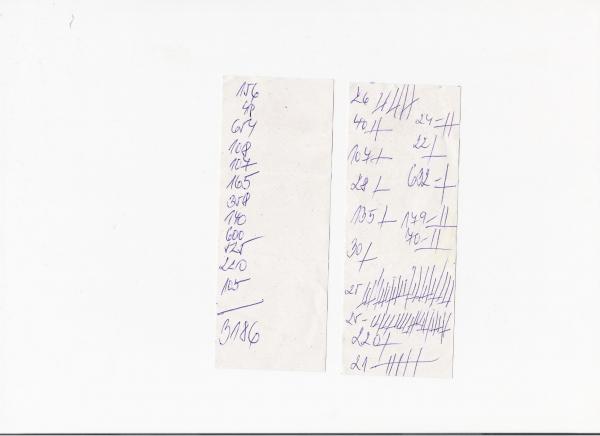 156
48
654
108
107
165
358
140
600
525
220
105
3186
26
40
107
28
135
30
25
25-
220
21-
24-
22
632-
179-
70-